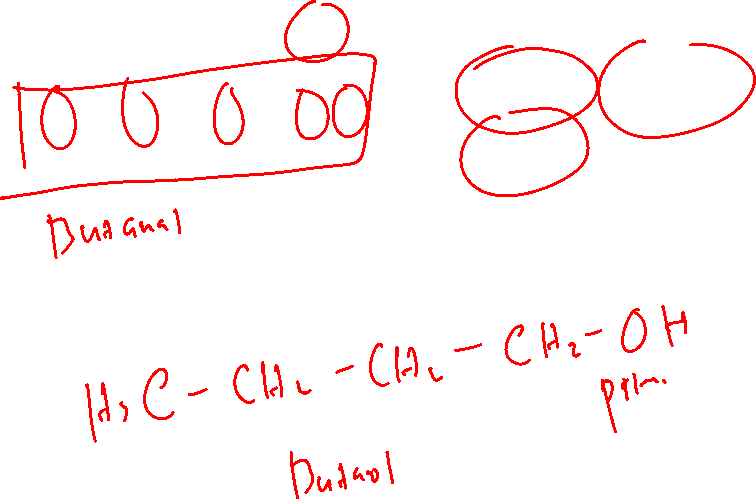 Butanal
H₃C - CH₂ - CH₂ - CH₂ - OH
prim.
Butanol